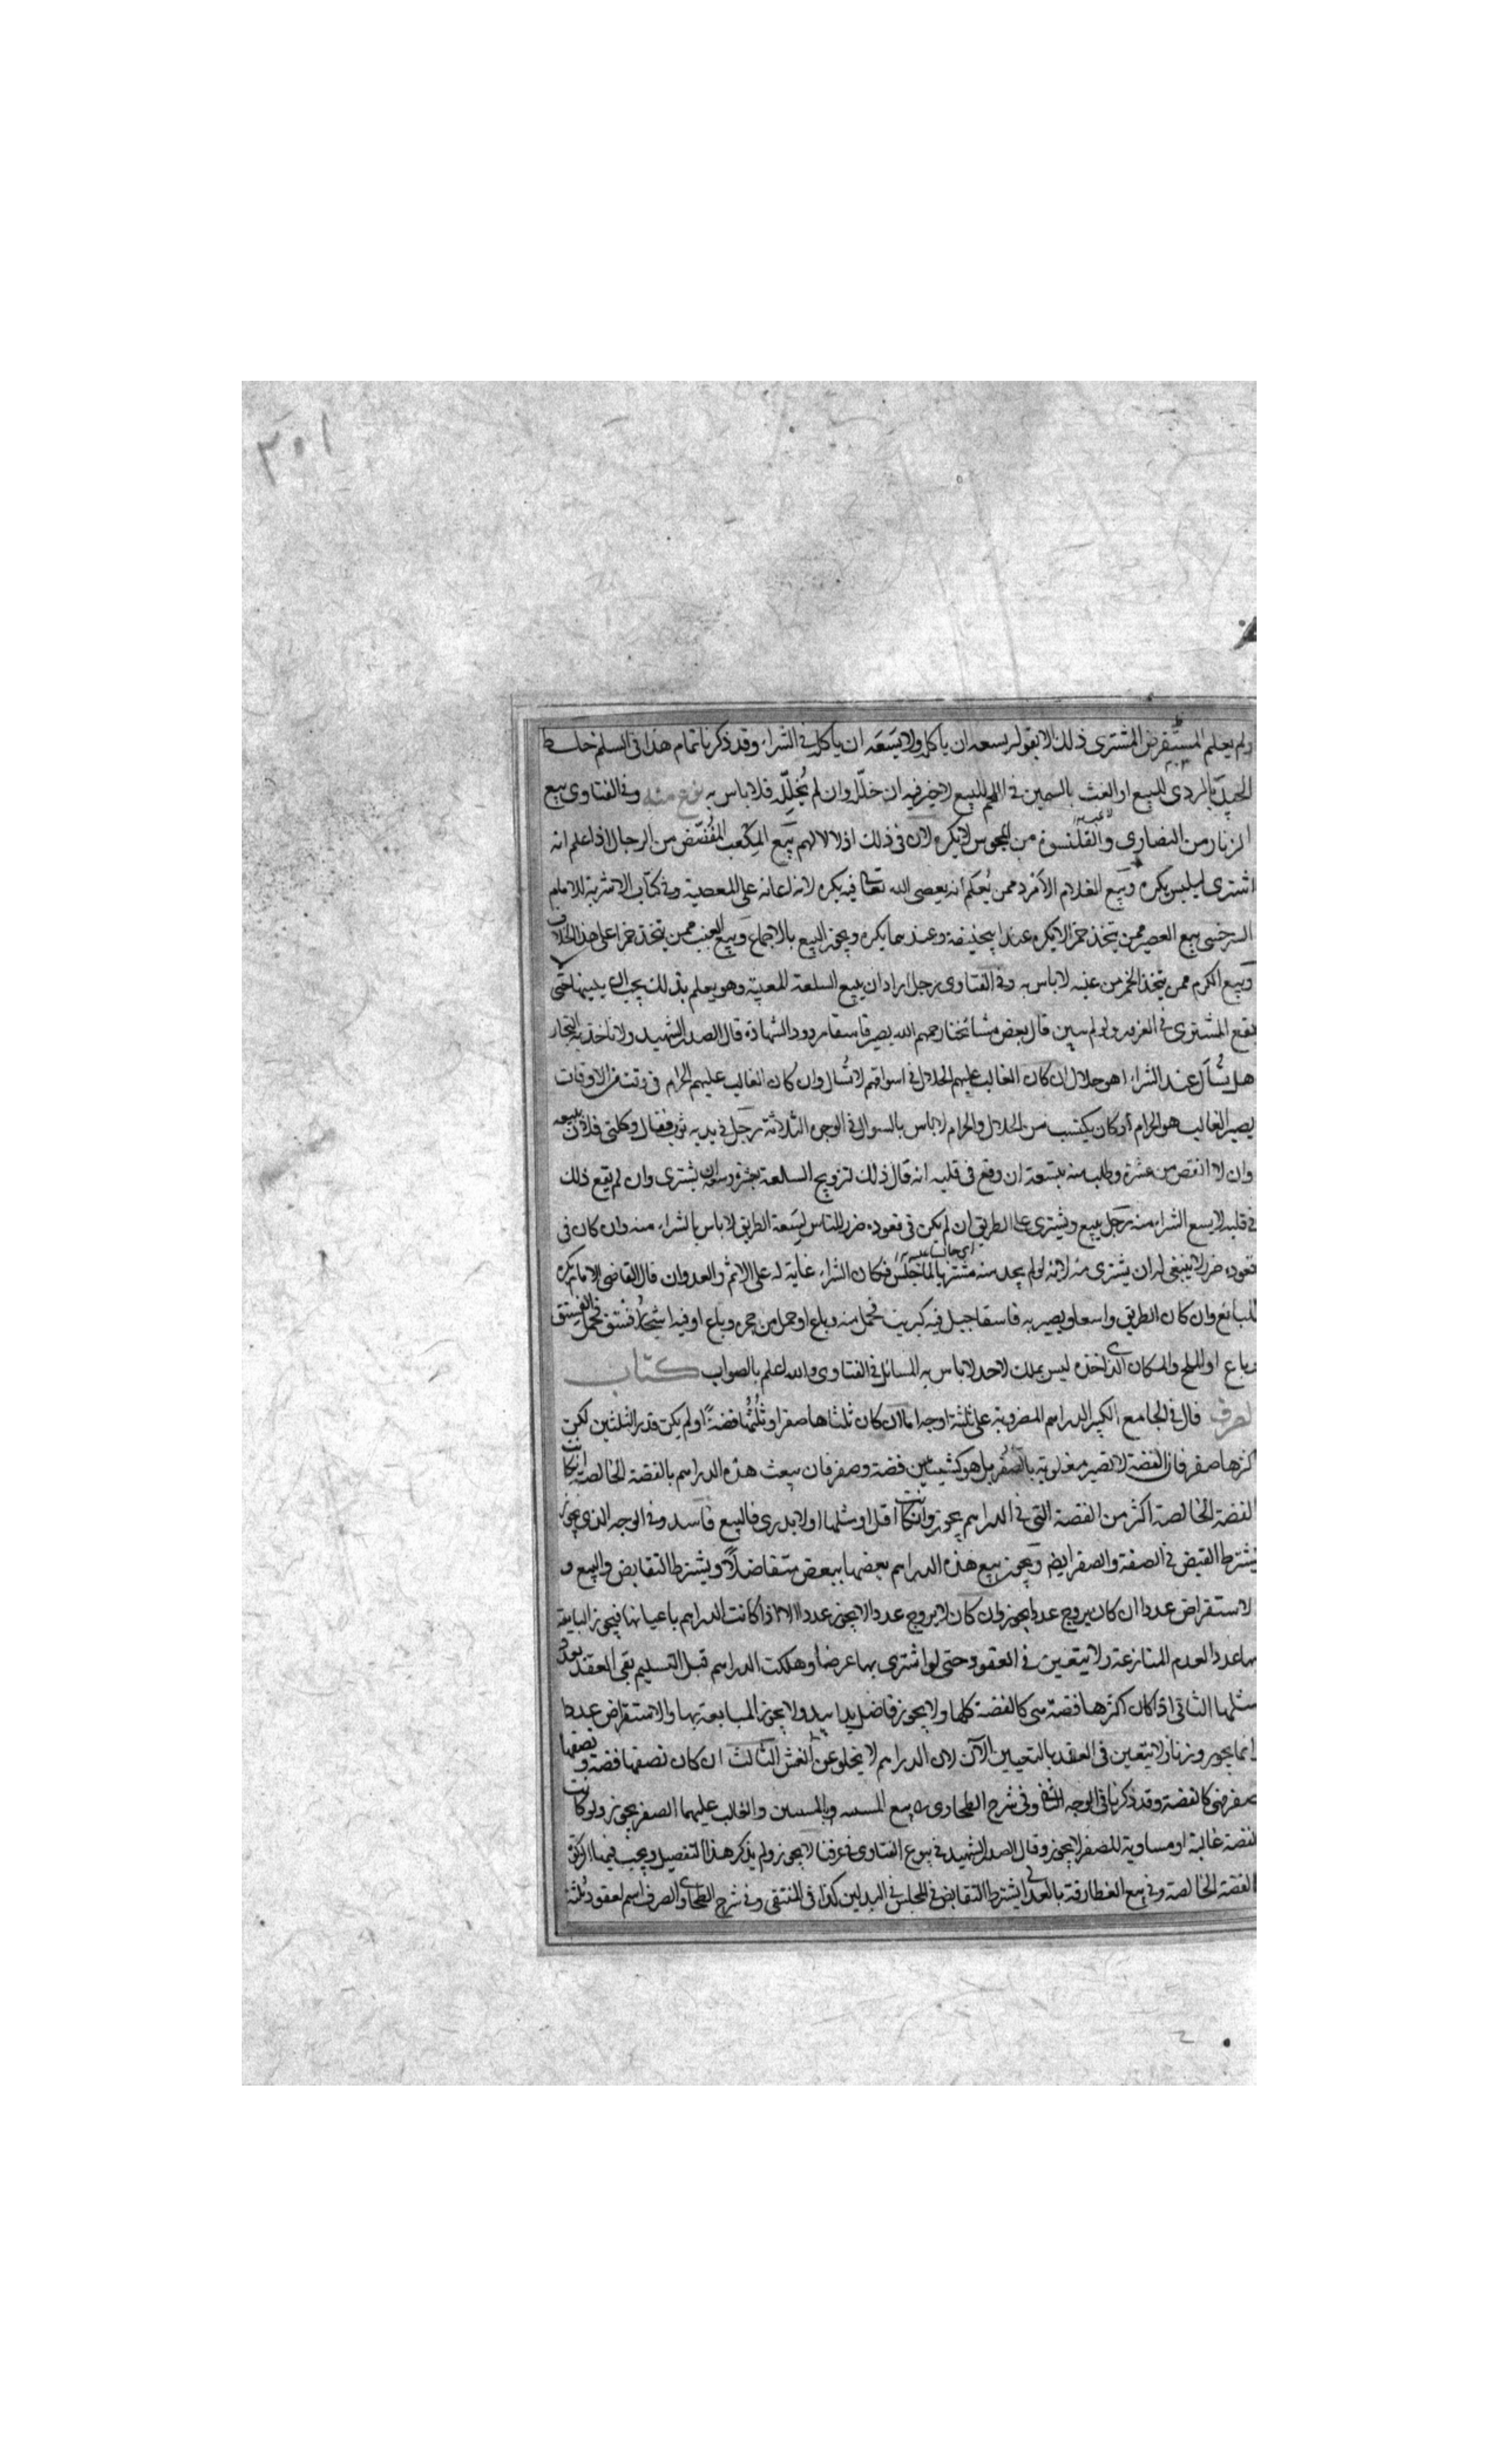 ٣٠١
ولم يعلم المستقرض المشترى ذلك لا يقول يسعه ان ياكل ولا يسعه ان ياكل فى الشراء وقد ذكرنا تمام هذا فى السلم خلط
الجيد بالردى للبيع او الغث بالسمين فى اللحم للبيع لا خير فيه ان خلل وان لم يخلل فلا باس به نوع منه وفى الفتاوى بيع
الزنار من النصارى والقلنسوة من المجوس لا يكره لان فى ذلك اذلالا لهم بيع المكعب المفضض من الرجال اذا علم انه
اشترى ليلبس يكره وبيع الغلام الامرد ممن يعلم انه يعصى الله تعالى فيه يكره لانه اعانه على المعصية وفى كتاب الاشربة للامام
السرخسى بيع العصير ممن يتخذ خمرا لا يكره عند ابيحنيفة وعندهما يكره ويجوز البيع بالاجماع وبيع العنب ممن يتخذ خمرا على هذا الخلاف
وبيع الكرم ممن يتخذ الخمر من عنبه لا باس به وفى الفتاوى رجل اراد ان يبيع السلعة المعيبة وهو يعلم بذلك يجب ان يبينها حتى
يقع المشترى فى الغرور ولو لم يبين قال بعض مشائخنا رحمهم الله يصير فاسقا مردود الشهادة قال الصدر الشهيد ولا ناخذ به التجار
هل يسأل عند الشراء اهو حلال ان كان الغالب عليهم الحلال فى اسواقهم لا يسال وان كان الغالب عليهم الحرام فى وقت من الاوقات
يصير الغالب هو الحرام او كان يكتسب من الحلال والحرام لا باس بالسوال فى الوجوه الثلاثة رجل فى يديه ثوب فقال وكلنى فلان ببيعه
وان لا انقص من عشرة وطلب منه بتسعة ان وقع فى قلبه انه قال ذلك لترويج السلعة بعشرة يشترى وان لم يقع ذلك
فى قلبه لا يسع الشراء منه رجل يبيع ويشترى على الطريق ان لم يكن فى قعوده ضرر للناس لسعة الطريق لا باس بالشراء منه وان كان فى
قعوده ضرر لا ينبغى له ان يشترى منه لانه لو لم يجد منه مشتريا لما جلس فكان الشراء اعانة له على الاثم والعدوان قال القاضى الامام يكره
للبائع وان كان الطريق واسعا ويصير به فاسقا جبل فيه كبريت فحمل منه وباع او حمل من حجره وباع او فيه اشجار فستق فحمل الفستق
وباع او الملح والمكان الذى اخذه ليس بملك لاحد لا باس به المسائل فى الفتاوى والله اعلم بالصواب كتاب
الصرف قال فى الجامع الكبير الدراهم المضروبة على ثلثة اوجه اما ان كان ثلثاها صفرا وثلثها فضة او لم يكن قدر الثلثين لكن
اكثرها صفر فان الفضة لا تصير مغلوبة بالصفر بل هو كشيئين فضة وصفر فان بيعت هذه الدراهم بالفضة الخالصة ان كانت
الفضة الخالصة اكثر من الفضة التى فى الدراهم يجوز وان كانت اقل او مثلها او لا يدرى فالبيع فاسد وفى الوجه الذى يجوز
يشترط القبض فى الصفة والصفر ايضا ويجوز بيع هذه الدراهم بعضها ببعض متفاضلا ويشترط التقابض والبيع و
الاستقراض عددا ان كان يروج عددا يجوز وان كان لا يروج عددا لا يجوز عددا الا اذا كانت الدراهم باعيانها فيجوز المبايعة
بها عددا لعدم المنازعة ولا يتعين فى العقود حتى لو اشترى بها عرضا وهلكت الدراهم قبل التسليم بقى العقد بعد
مثلها الثانى اذا كان اكثرها فضة هى كالفضة كلها ولا يجوز فاضل يدا بيد ولا يجوز المبايعة بها والاستقراض عددا
انما يجوز وزنا ولا يتعين فى العقد بالتعيين لان الدراهم لا يخلو عن الغش الثالث ان كان نصفها فضة ونصفها
صفر فهى كالفضة وقد ذكرنا فى الوجه الثانى وفى شرح الطحاوى بيع والغالب عليهما الصفر يجوز ولو كانت
الفضة غالبة او مساوية للصفر لا يجوز وقال الصدر الشهيد فى بيوع الفتاوى فى عرفنا لا يجوز ولم يذكر هذا التفصيل ويجب
الفضة الخالصة وفى بيع الغطارفة بالعدالى يشترط التقابض فى المجلس فى البدلين كذا فى المنتقى وفى شرح الطحاوى الصرف اسم لعقود ثلثة